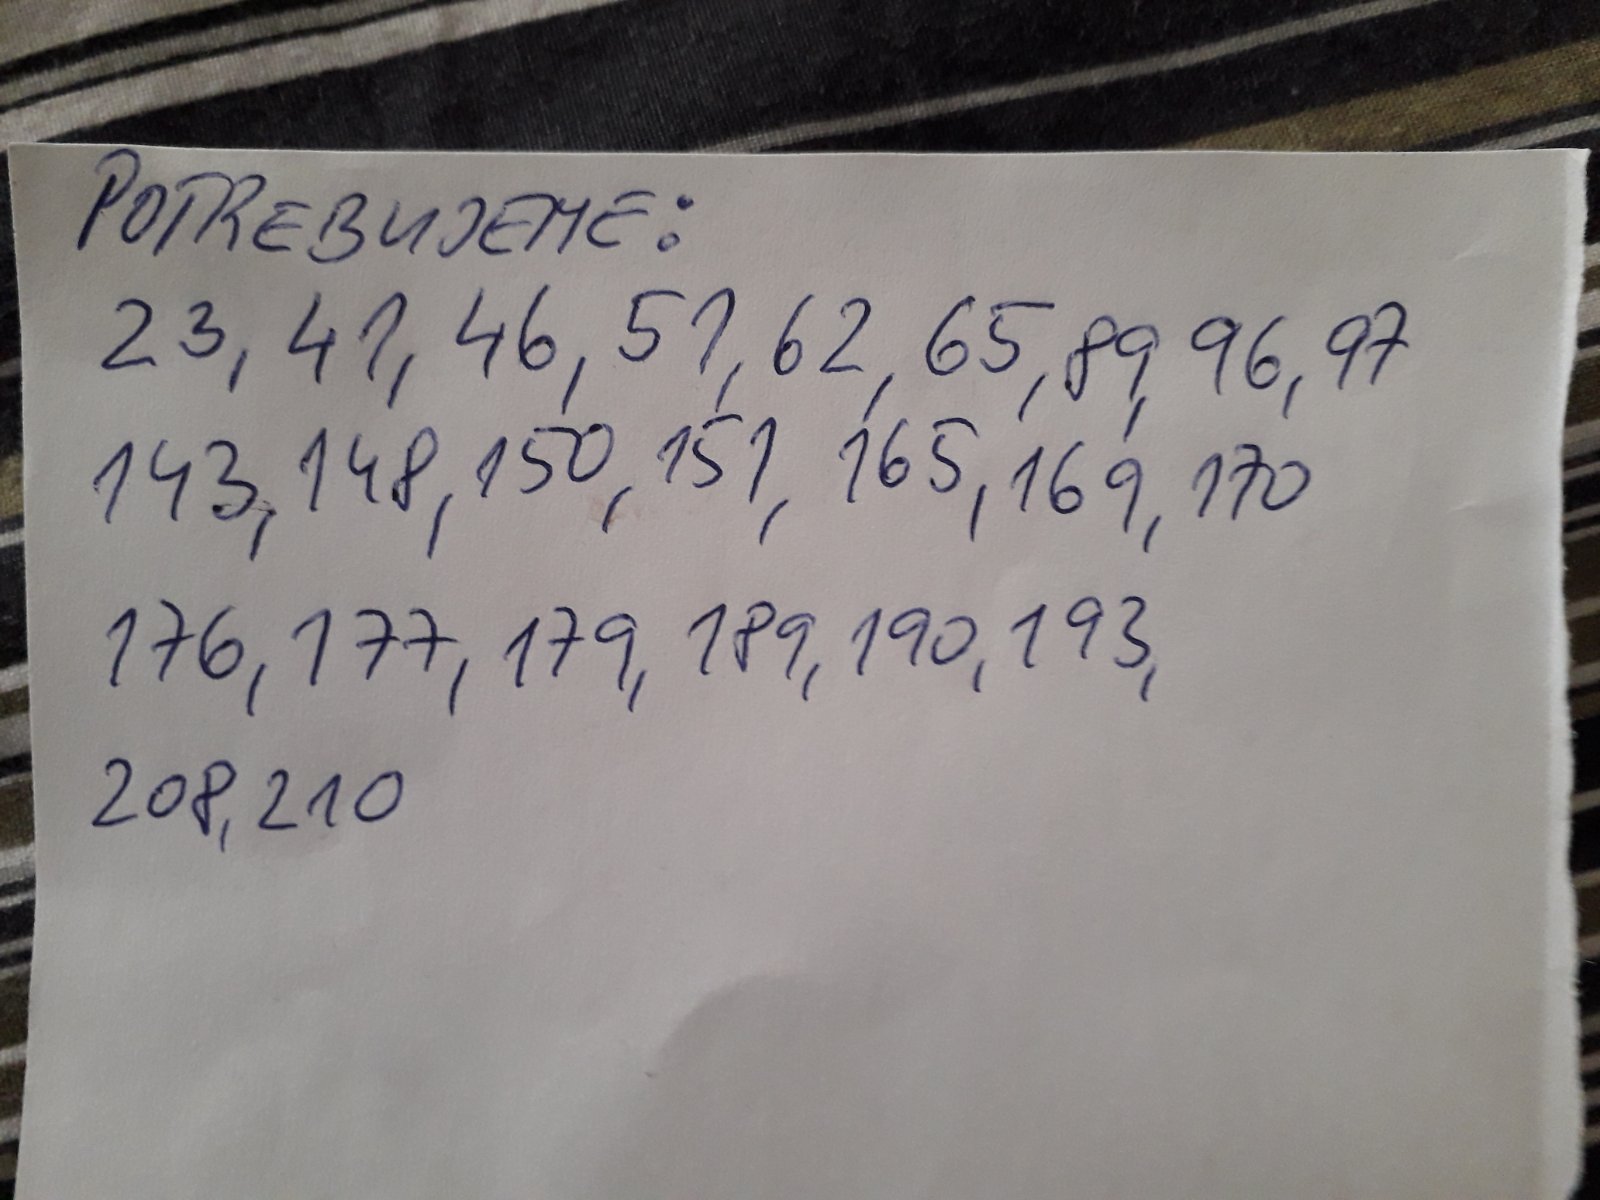 POTREBUJEME:
23, 41, 46, 51, 62, 65, 89, 96, 97
143, 148, 150, 151, 165, 169, 170
176, 177, 179, 189, 190, 193,
208, 210